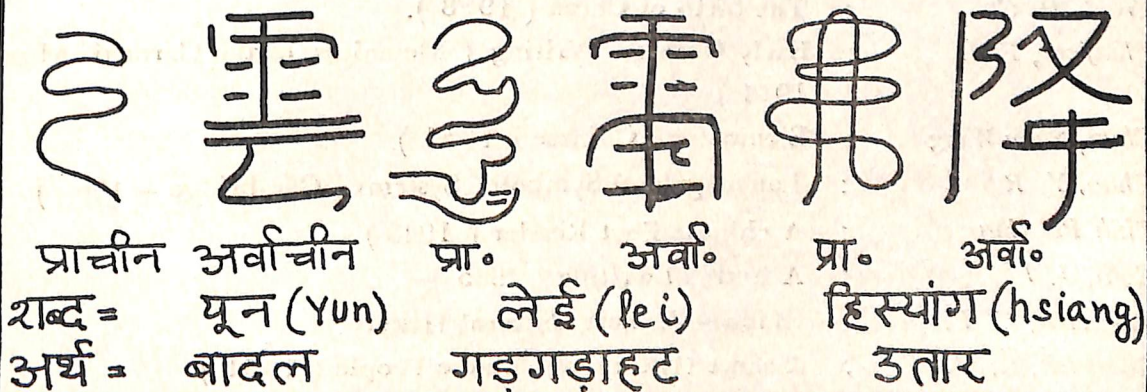 雲 電 降
प्राचीन अर्वाचीन प्रा॰ अर्वा॰ प्रा॰ अर्वा॰
शब्द = यून (Yun) लेई (lei) हिस्यांग (hsiang)
अर्थ = बादल गड़गड़ाहट उतार